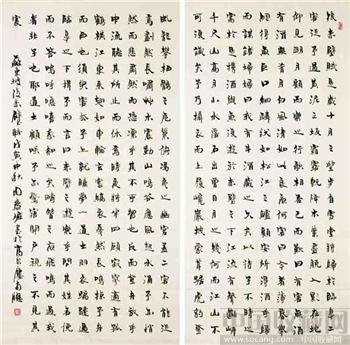 後赤壁賦是歲十月之望步自雪堂將歸於臨
皋二客從予過黃泥之坂霜露既降木葉盡脫人影在地
仰見明月顧而樂之行歌相答已而歎曰有客無酒
有酒無肴月白風清如此良夜何客曰今者薄暮
舉網得魚巨口細鱗狀似松江之鱸顧安
所得酒乎歸而謀諸婦婦曰我有斗酒藏之久矣以待子不時之
需於是攜酒與魚復遊於赤壁之下江流有聲斷岸
千尺山高月小水落石出曾日月之幾何而江山不
可復識矣予乃攝衣而上履巉巖披蒙茸踞虎豹登
虬龍攀棲鶻之危巢俯馮夷之幽宮蓋二客不能從
焉劃然長嘯草木震動山鳴谷應風起水涌予亦悄
然而悲肅然而恐凜乎其不可留也反而登舟放乎
中流聽其所止而休焉時夜將半四顧寂寥適有孤
鶴橫江東來翅如車輪玄裳縞衣戛然長鳴掠予舟
而西也須臾客去予亦就睡夢一道士羽衣蹁躚過
臨皋之下揖予而言曰赤壁之遊樂乎問其姓名俛
而不答嗚呼噫嘻我知之矣疇昔之夜飛鳴而過我
者非子也耶道士顧笑予亦驚寤開戶視之不見其
處
蘇東坡後赤壁賦戊寅中秋
中国收藏网
www.socang.com